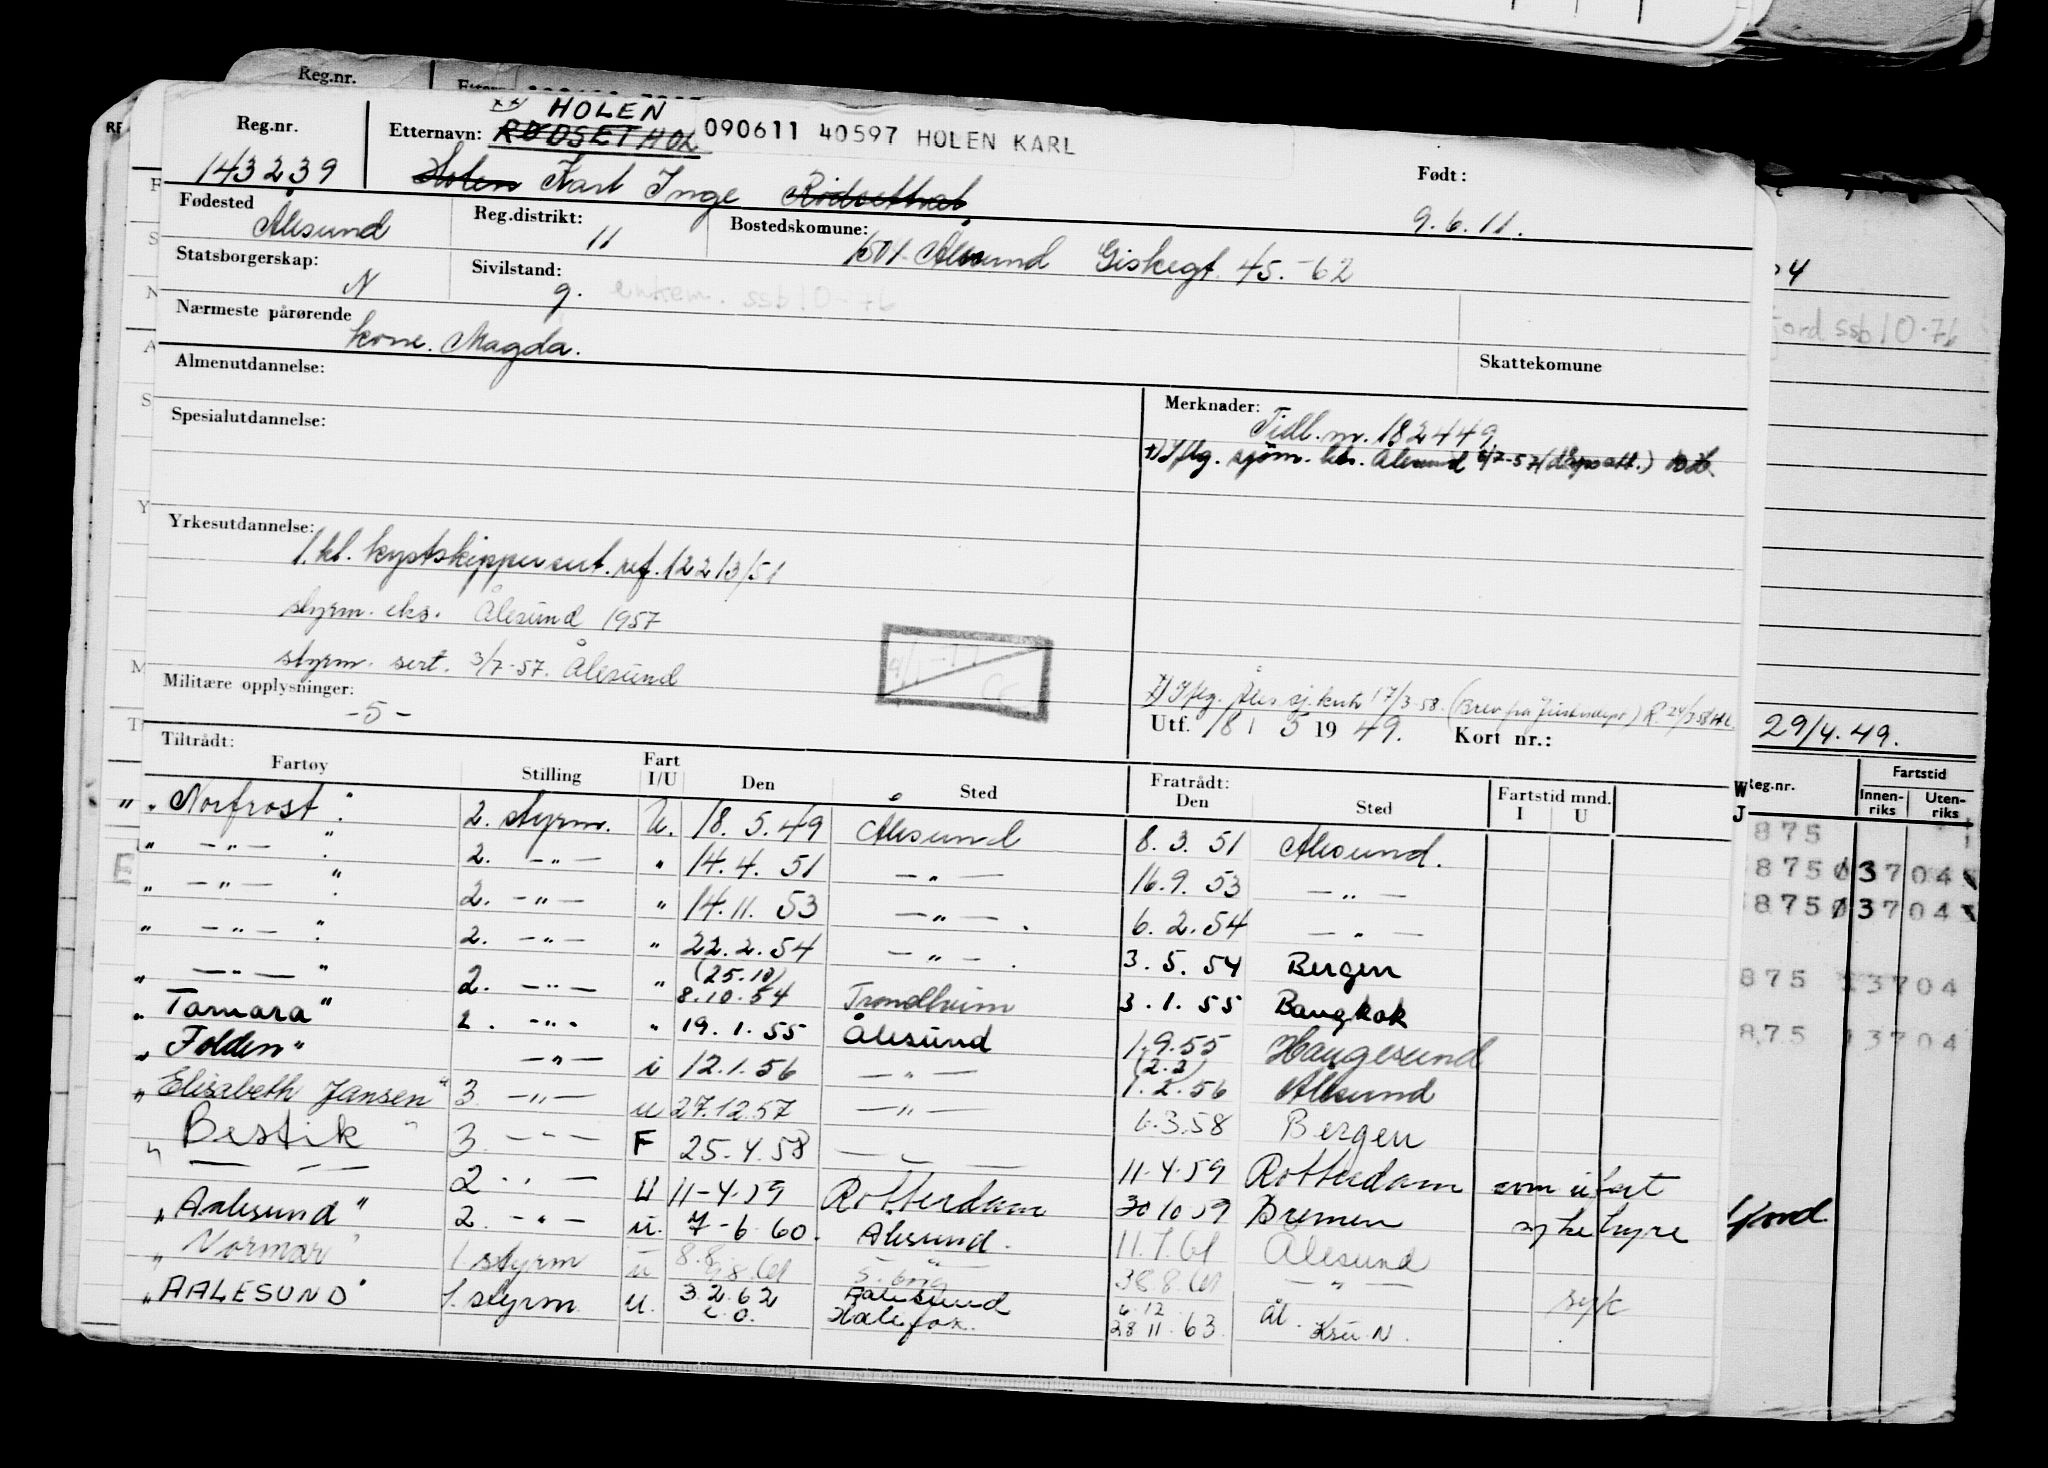 Reg.nr.
HOLEN
Reg.nr. Etternavn: RØDSETHOL 090611 40597 HOLEN KARL
143239 Holen Karl Inge Rødsethol Født: 9.6.11.
Fødested Ålesund Reg.distrikt: 11 Bostedskomune: 1501 Ålesund Giskegt. 45.-62
Statsborgerskap: N Sivilstand: g. enkem. ssb 10-76
Nærmeste pårørende kone. Magda.
Skattekomune
Almenutdannelse:
Merknader: Tidl. nr. 182449
Spesialutdannelse:
x) Iflg. sjøm. ktr. Ålesund 6/7-57 (dåpsatt.)
Yrkesutdannelse: 1. kl. kystskippersert. ref. 12213/51
styrm. eks. Ålesund 1957
styrm. sert. 3/7-57. Ålesund
Militære opplysninger: -5-
Iflg. Åles sj. ktr 17/3-58. (Brev fra
Utf. 18 / 5 19 49. Kort nr.:
29/4.49.
Tiltrådt: Fratrådt:
Fartøy Stilling Fart I/U Den Sted Den Sted Fartstid mnd. I U
"Norfrost" 2. styrm. U. 18. 5. 49 Ålesund 8. 3. 51 Ålesund.
" -"- " 2. -"- " 14. 4. 51 -"- 16. 9. 53 -"-
" -"- " 2. -"- " 14. 11. 53 -"- 6. 2. 54 -"-
" -"- " 2. -"- " 22. 2. 54 -"- 3. 5. 54 Bergen
" -"- " 2. -"- " (25.10) 8.10.54 Trondheim 3. 1. 55 Bangkok
"Tamara" 2. -"- " 19. 1. 55 Ålesund 1.9.55 Haugesund
"Folden" -"- i 12.1.56 -"- (2.2) 1. 2. 56 Ålesund
"Elisabeth Jansen" 3 -"- u 27.12.57 -"- 6.3.58 Bergen
"Bestik" 3 -"- F 25.4.58 -"- 11.4.59 Rotterdam som u fart
" -"- 2 -"- U 11-4.59 Rotterdam 30 10 59 Bremen sykehyre
"Aalesund" 2. -"- u. 7-6.60. Ålesund. 11.7.61 Ålesund
"Normar" 1. styrm u 8.8.61 S. borg -"- syk
"AALESUND" 1. styrm u. 3.2.62 Aalesund 6.12 Ål.
Halifax. 28 11.63. Krsu. N.
ssb 10-76
Reg.nr. Fartstid
Innenriks Utenriks
875
875 03704
875 03704
875 3704
875 3704